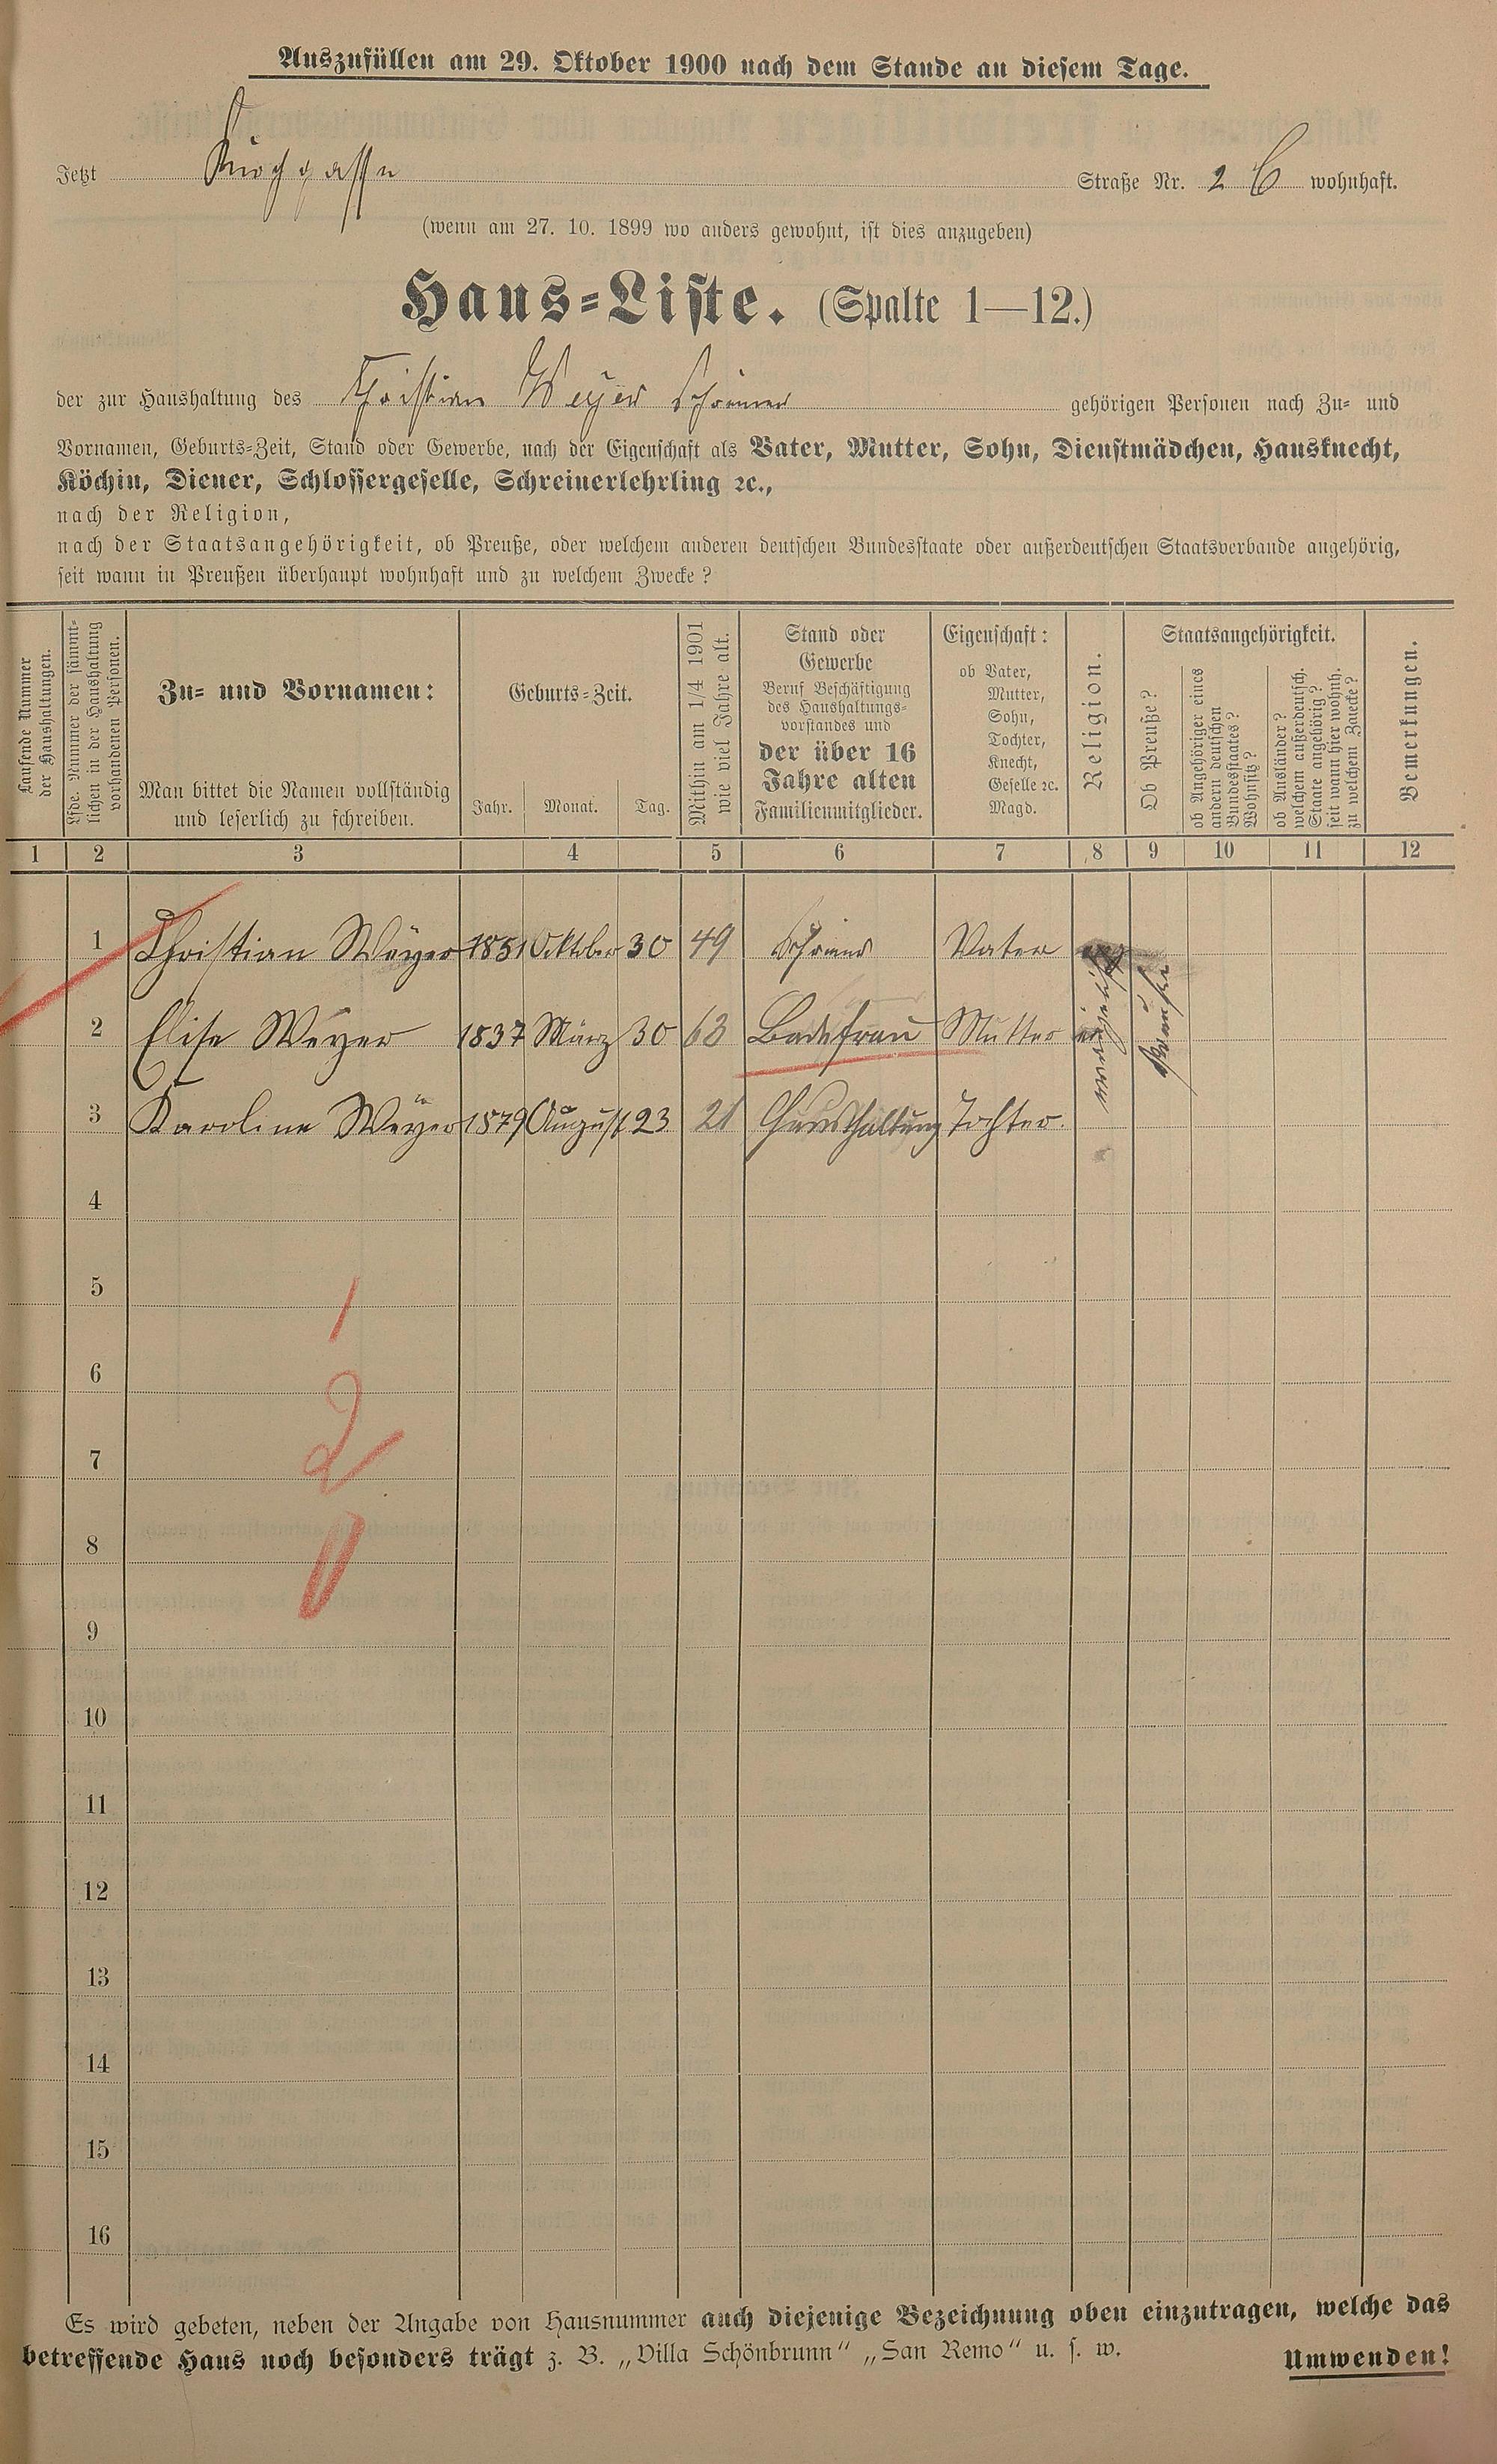 Auszufüllen am 29. Oktober 1900 nach dem Stande an diesem Tage.
Jetzt Kirchgasse Straße Nr. 2 C wohnhaft.
(wenn am 27. 10. 1899 wo anders gewohnt, ist dies anzugeben)
Haus-Liste. (Spalte 1—12.)
der zur Haushaltung des Christian Weyer Schreiner gehörigen Personen nach Zu- und
Vornamen, Geburts-Zeit, Stand oder Gewerbe, nach der Eigenschaft als Vater, Mutter, Sohn, Dienstmädchen, Hausknecht,
Köchin, Diener, Schlossergeselle, Schreinerlehrling ꝛc.,
nach der Religion,
nach der Staatsangehörigkeit, ob Preuße, oder welchem anderen deutschen Bundesstaate oder außerdeutschen Staatsverbande angehörig,
seit wann in Preußen überhaupt wohnhaft und zu welchem Zwecke?
Laufende Nummer
der Haushaltungen.
Lfde. Nummer der sämmt-
lichen in der Haushaltung
vorhandenen Personen.
Zu- und Vornamen:
Man bittet die Namen vollständig
und leserlich zu schreiben.
Geburts-Zeit.
Jahr. Monat. Tag.
Mithin am 1/4 1901
wie viel Jahre alt.
Stand oder
Gewerbe
Beruf Beschäftigung
des Haushaltungs-
vorstandes und
der über 16
Jahre alten
Familienmitglieder.
Eigenschaft:
ob Vater,
Mutter,
Sohn,
Tochter,
Knecht,
Geselle ꝛc.
Magd.
Religion.
Staatsangehörigkeit.
Ob Preuße?
ob Angehöriger eines
andern deutschen
Bundesstaates?
Wohnsitz?
ob Ausländer?
welchem außerdeutsch.
Staate angehörig?
seit wann hier wohnh.
zu welchem Zwecke?
Bemerkungen.
1 2 3 4 5 6 7 8 9 10 11 12
1 Christian Weyer 1851 Oktober 30 49 Schreiner Vater
2 Elise Weyer 1837 März 30 63 Badefrau Mutter
3 Karoline Weyer 1879 August 23 21 Haushaltung Tochter.
evangelisch
Preuße
4
5
1
6
2
7
8
0
9
10
11
12
13
14
15
16
Es wird gebeten, neben der Angabe von Hausnummer auch diejenige Bezeichnung oben einzutragen, welche das
betreffende Haus noch besonders trägt z. B. „Villa Schönbrunn“ „San Remo“ u. s. w.
Umwenden!